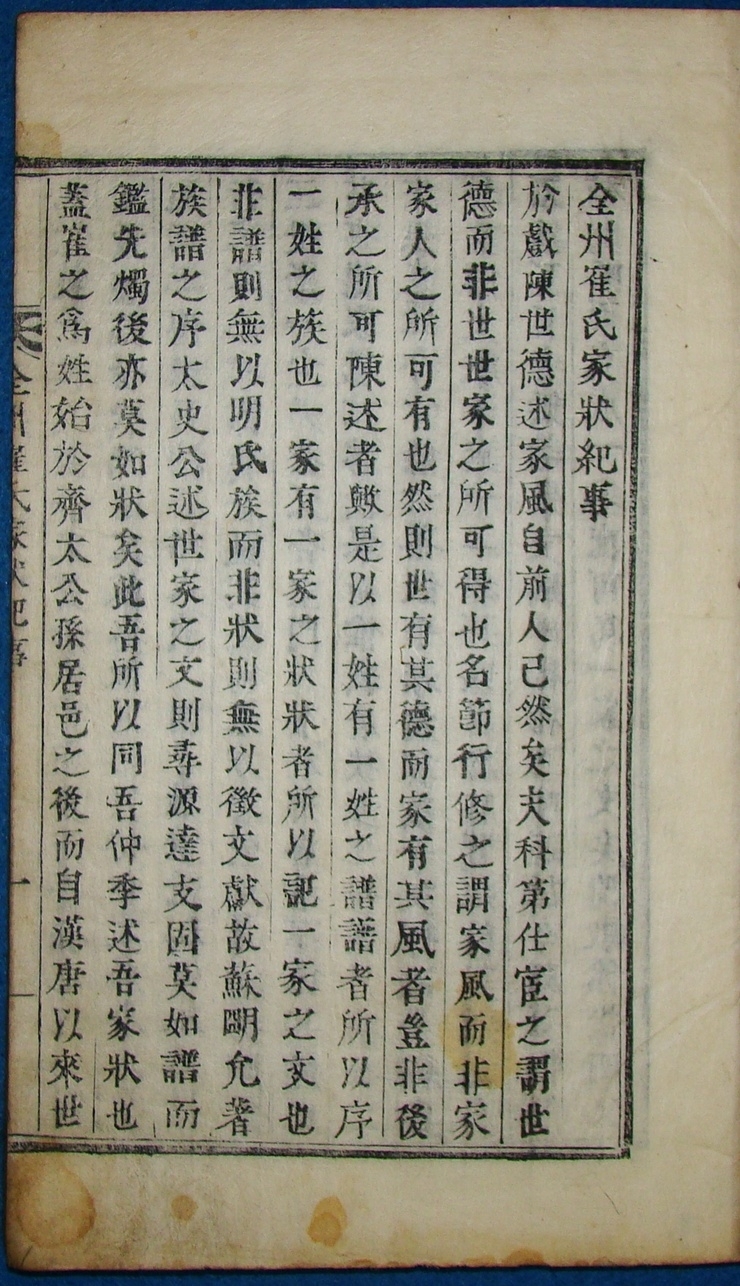 全州崔氏家狀紀事
於戲陳世德述家風自前人已然矣夫科第仕宦之謂世
德而非世世家之所可得也名節行修之謂家風而非家
家人之所可有也然則世有其德而家有其風者豈非後
承之所可陳述者歟是以一姓有一姓之譜譜者所以序
一姓之族也一家有一家之狀狀者所以記一家之文也
非譜則無以明氏族而非狀則無以徵文獻故蘇明允著
族譜之序太史公述世家之文則尋源達支固莫如譜而
鑑先燭後亦莫如狀矣此吾所以同吾仲季述吾家狀也
蓋崔之爲姓始於齊太公孫居邑之後而自漢唐以來世
全州崔氏家狀紀事 一